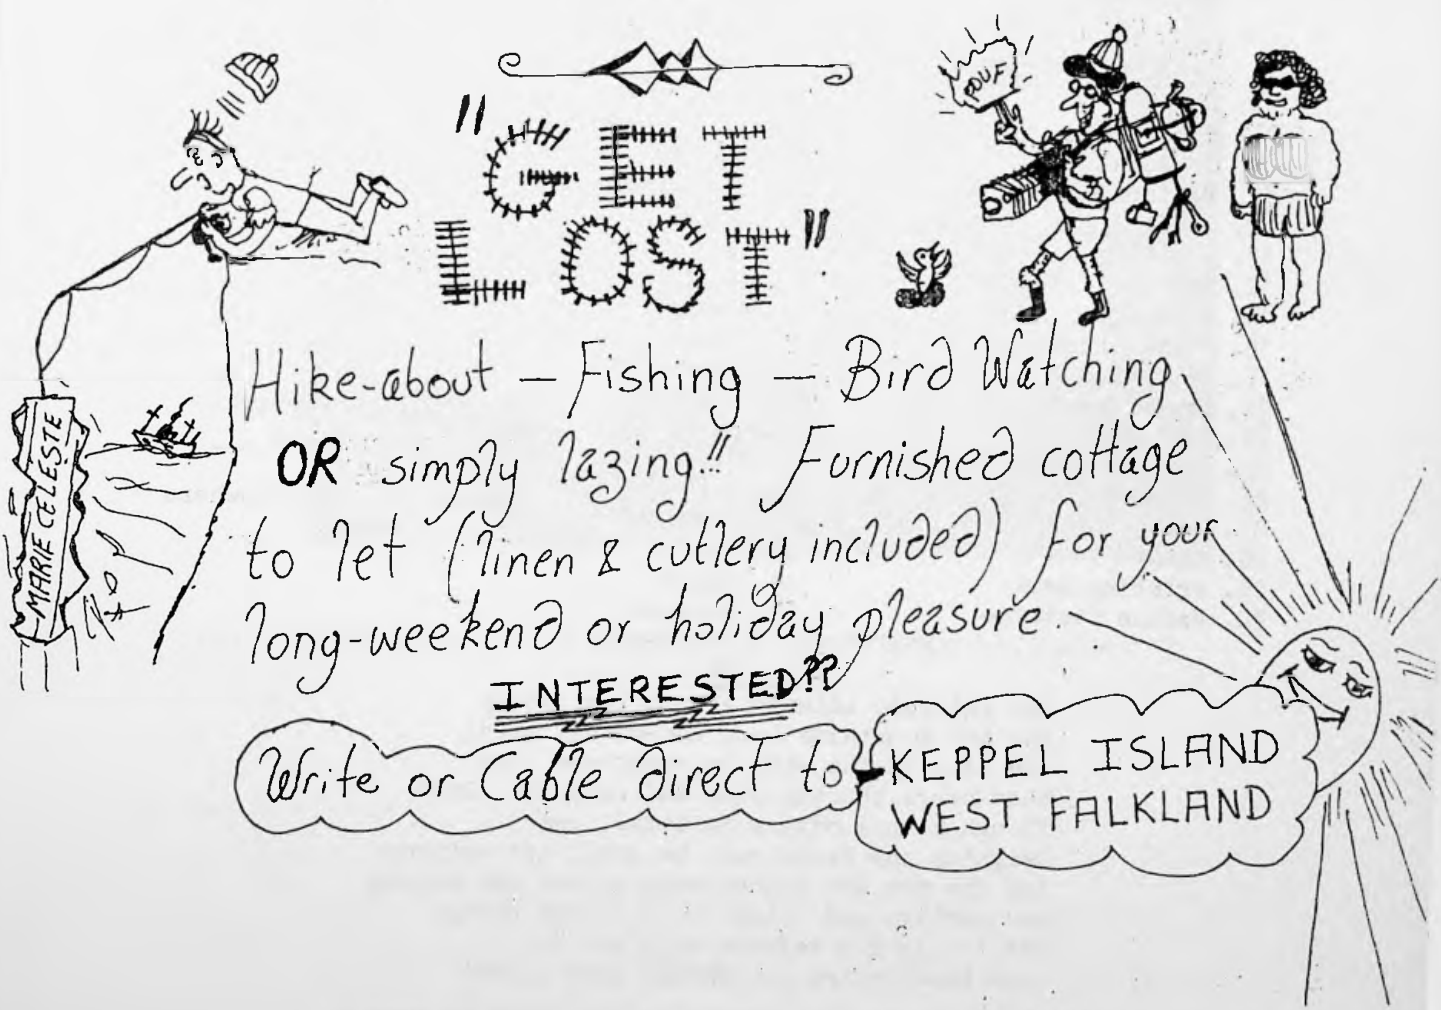 "GET
LOST"
POUF
Hike-about — Fishing — Bird Watching
OR simply lazing!! Furnished cottage
to let (linen & cutlery included) for your
long-weekend or holiday pleasure.
MARIE CELESTE
INTERESTED??
Write or Cable direct to KEPPEL ISLAND
WEST FALKLAND